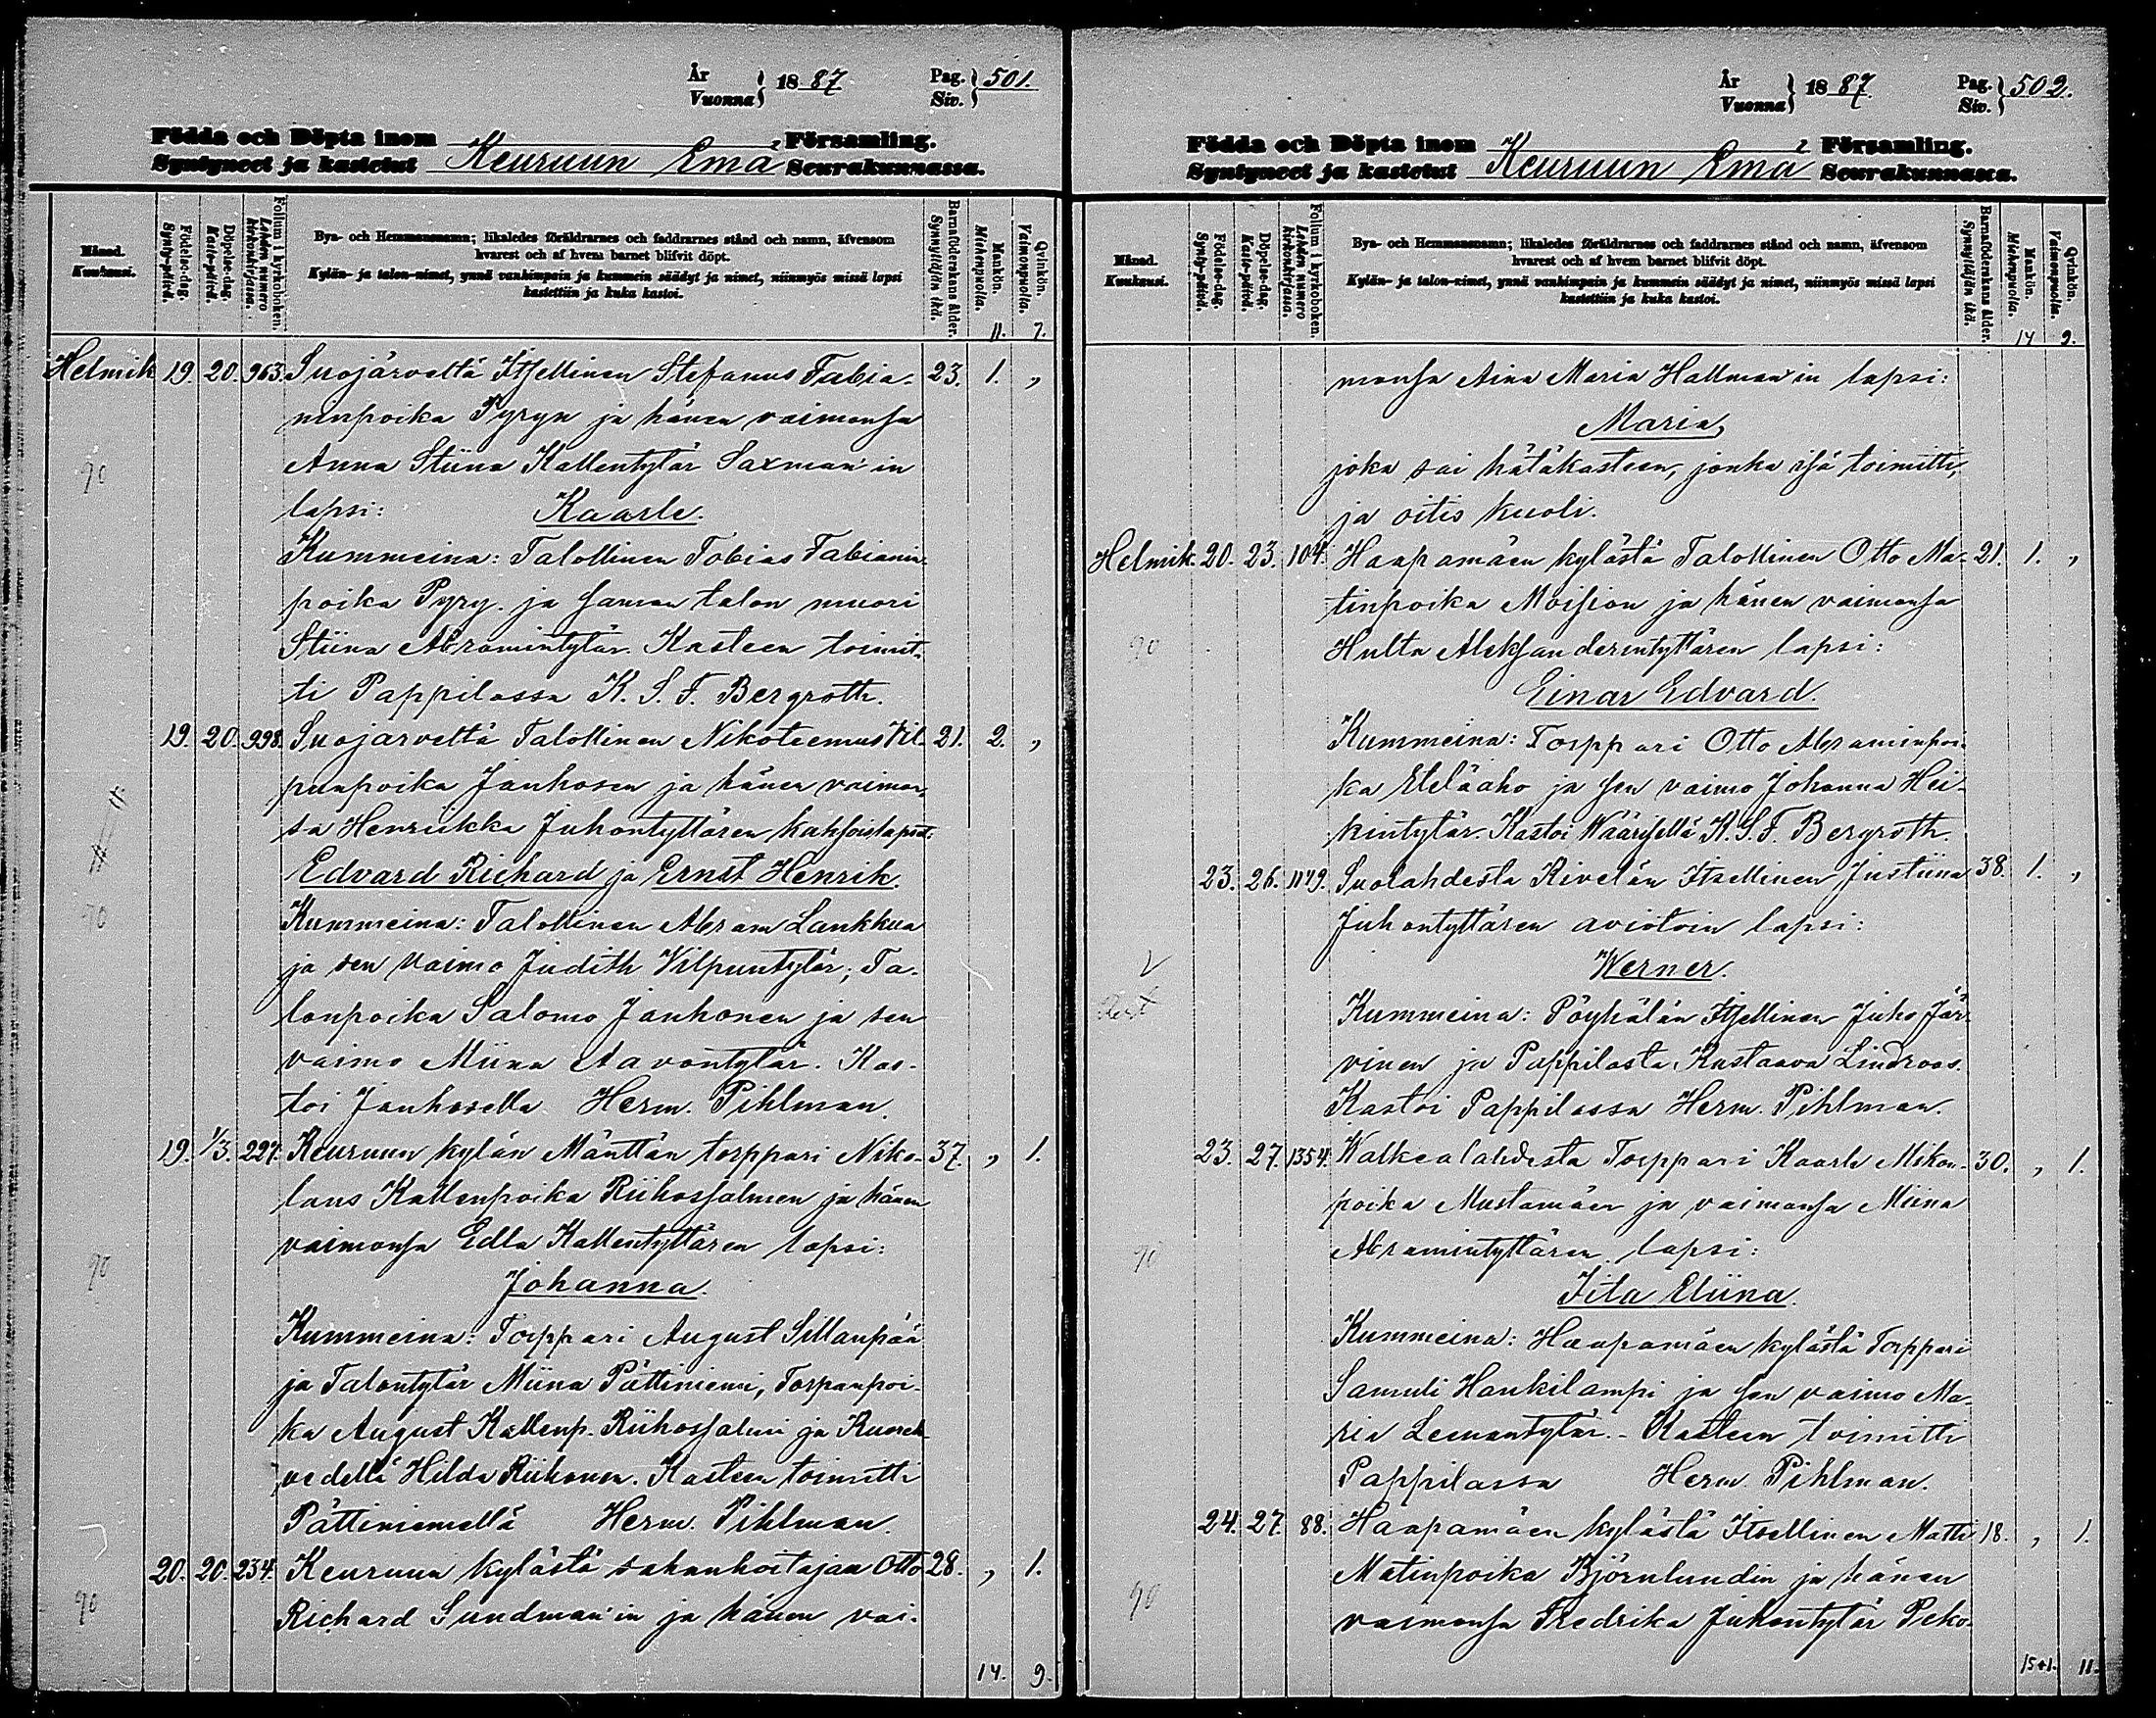 År
Vuonna } 18 87 Pag.
Siv. } 501.
Födda och Döpta inom Församling.
Syntyneet ja kastetut Keuruun Emä Seurakunnassa.
Månad. Kuukausi.
Födelse-dag. Synty-päivä.
Döpelse-dag. Kaste-päivä.
Folium i kyrkoboken. Lehden numero kirkonkirjassa.
Bya- och Hemmansnamn; likaledes föräldrarnes och faddrarnes stånd och namn, äfvensom
hvarest och af hvem barnet blifvit döpt.
Kylän- ja talon-nimet, ynnä vanhimpain ja kummein säädyt ja nimet, niinmyös missä lapsi
kastettiin ja kuka kastoi.
Barnaföderskans ålder. Synnyttäjän ikä.
Mankön. Miehenpuolia. 11.
Qvinkön. Vaimonpuolia. 7.
Helmik 19. 20. 963. Suojärveltä Itsellinen Stefanus Fabia- 23. 1. ,
ninpoika Pyryn ja hänen vaimonsa
Anna Stiina Kallentytär Saxman'in
90
lapsi: Kaarle.
Kummeina: Talollinen Tobias Fabianin-
poika Pyry ja saman talon muori
Stiina Abramintytär. Kasteen toimit-
ti Pappilassa K. S. F. Bergroth.
19. 20. 998. Suojarveltä Talollinen Nikoteemus Vil- 21. 2. ,
punpoika Janhosen ja hänen vaimon-
sa Henriikka Juhontyttären kaksoislapset:
Edvard Richard ja Ernst Henrik.
90
Kummeina: Talollinen Abram Lankkua
ja sen vaimo Judith Vilpuntytär; Ta-
lonpoika Salomo Janhonen ja sen
vaimo Miina Aavontytär. Kas-
toi Janhosella Herm. Pihlman.
19. 1/3. 227. Keuruun kylän Mänttän torppari Niko- 37. , 1.
laus Kallenpoika Riihossalmen ja hänen
vaimonsa Edla Kallentyttären lapsi:
90
Johanna.
Kummeina: Torppari August Sillanpää
ja Talontytär Miina Pättiniemi, Torpanpoi-
ka August Kallenp. Riihossalmi ja Kuoreh-
vedeltä Hilda Riihonen. Kasteen toimitti
Pättiniemellä Herm. Pihlman.
20. 20. 234. Keuruun kylästä sahanhoitajan Otto 28. , 1.
90
Richard Sundman'in ja hänen vai-
14. 9.
År
Vuonna } 18 87. Pag.
Siv. } 502.
Födda och Döpta inom Församling.
Syntyneet ja kastetut Keuruun Emä Seurakunnassa.
Månad. Kuukausi.
Födelse-dag. Synty-päivä.
Döpelse-dag. Kaste-päivä.
Folium i kyrkoboken. Lehden numero kirkonkirjassa.
Bya- och Hemmansnamn; likaledes föräldrarnes och faddrarnes stånd och namn, äfvensom
hvarest och af hvem barnet blifvit döpt.
Kylän- ja talon-nimet, ynnä vanhimpain ja kummein säädyt ja nimet, niinmyös missä lapsi
kastettiin ja kuka kastoi.
Barnaföderskans ålder. Synnyttäjän ikä.
Mankön. Miehenpuolia. 14
Qvinkön. Vaimonpuolia. 9.
monsa Aina Maria Hallman'in lapsi:
Maria,
joka sai hätäkasteen, jonka isä toimitti,
ja oitis kuoli.
Helmik. 20. 23. 104. Haapamäen kylästä Talollinen Otto Ma- 21. 1. ,
tinpoika Moision ja hänen vaimonsa
90
Hulta Aleksanderintyttären lapsi:
Einar Edvard.
Kummeina: Torppari Otto Abraminpoi-
ka Eteläaho ja sen vaimo Johanna Hei-
kintytär. Kastoi Wäärisellä K. S. F. Bergroth.
23. 26. 1179. Suolahdesta Kivelän Itsellinen Justiina 38. 1. ,
Juhontyttären aviotoin lapsi:
Werner.
Kummeina: Pöyhälän Itsellinen Juho Jär-
vinen ja Pappilasta Kustaava Lindroos.
Kastoi Pappilassa Herm. Pihlman.
23. 27. 1354. Walkealahdesta Torppari Kaarle Mikon- 30. , 1.
poika Mustamäen ja vaimonsa Miina
90
Abramintyttären lapsi:
Iita Eliina.
Kummeina: Haapamäen kylästä Torppari
Samuli Hankilampi ja sen vaimo Ma-
ria Leenantytär. - Kasteen toimitti
Pappilassa Herm. Pihlman.
24. 27. 88. Haapamäen kylästä Itsellinen Matti 18. , 1.
Matinpoika Björnlundin ja hänen
90
vaimonsa Fredrika Juhontytär Peko-
15+1. 11.